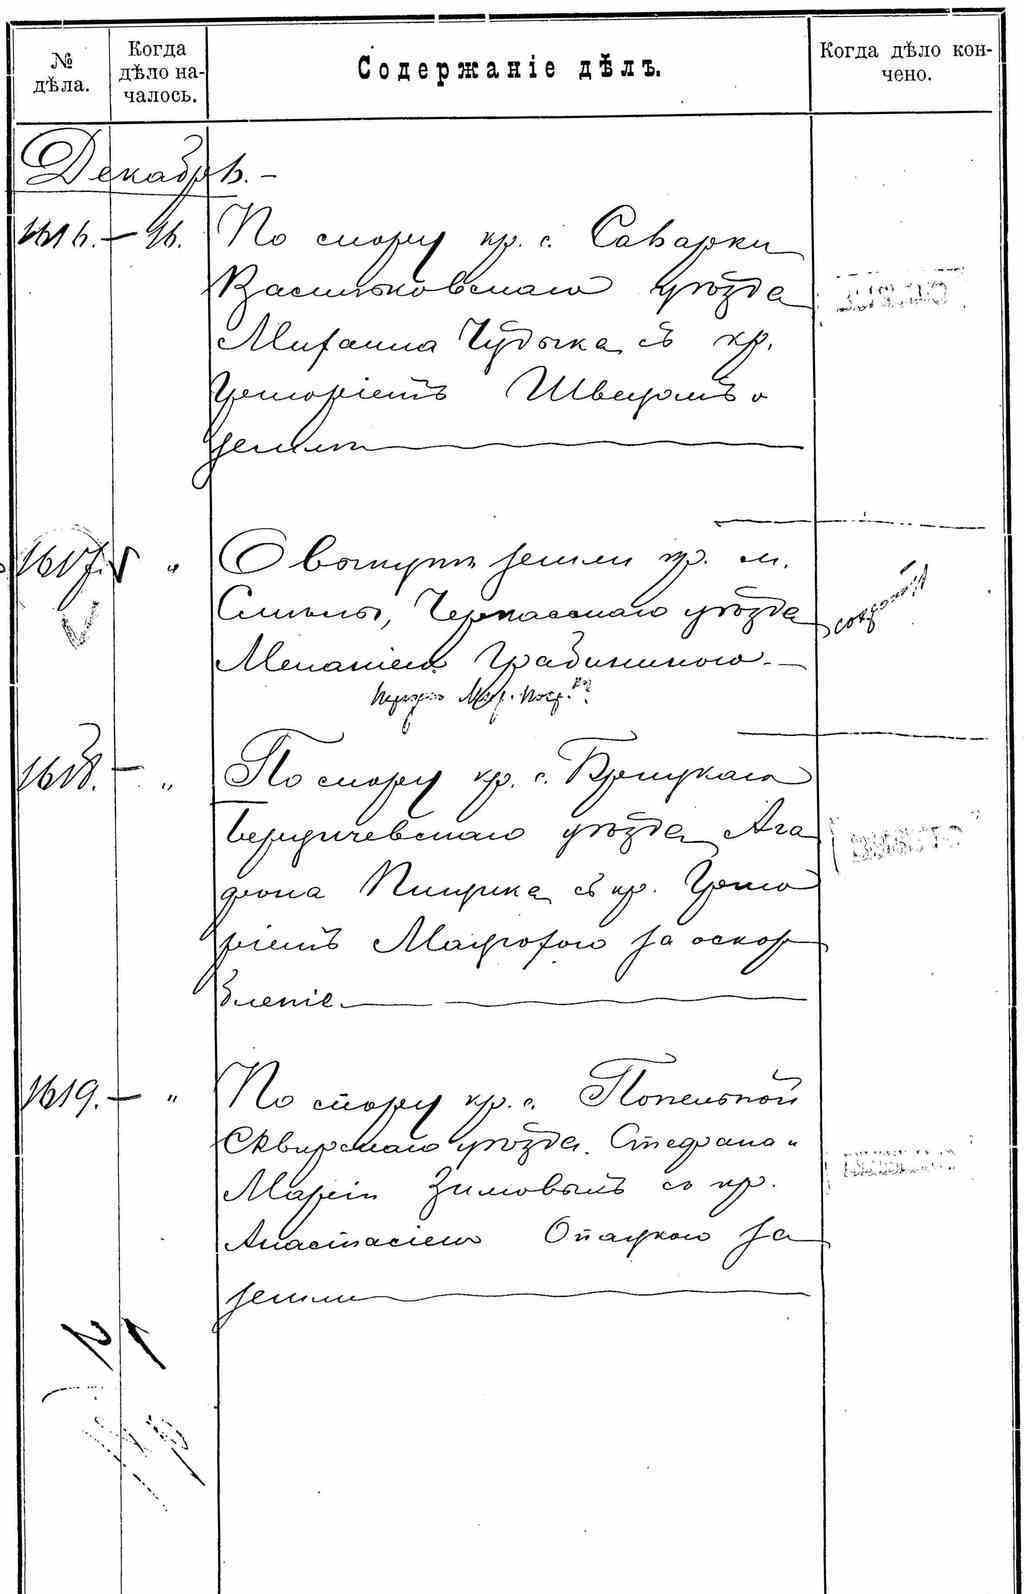 № дѣла.
Когда дѣло на-
чалось.
Содержаніе дѣлъ.
Когда дѣло кон-
чено.
Декабрь.-
1616. — 16. По спору кр. с. Саварки
Васильковскаго уѣзда
Михаила Чудыка съ кр.
Григоріемъ Швецомъ о
земли
1617. V " О выкупѣ земли кр. м.
Смѣлы, Черкасскаго уѣзда
Меланіею
1618. — " По спору кр. с.
Бердичевскаго уѣзда Ага
фона съ кр. Григо
ріемъ за оскор
бленіе
1619. — " По спору кр. с. Попельной
Сквирскаго уѣзда. Стефана и
Маріи Зимовымъ съ кр.
Анастасіею Опацкою за
земли